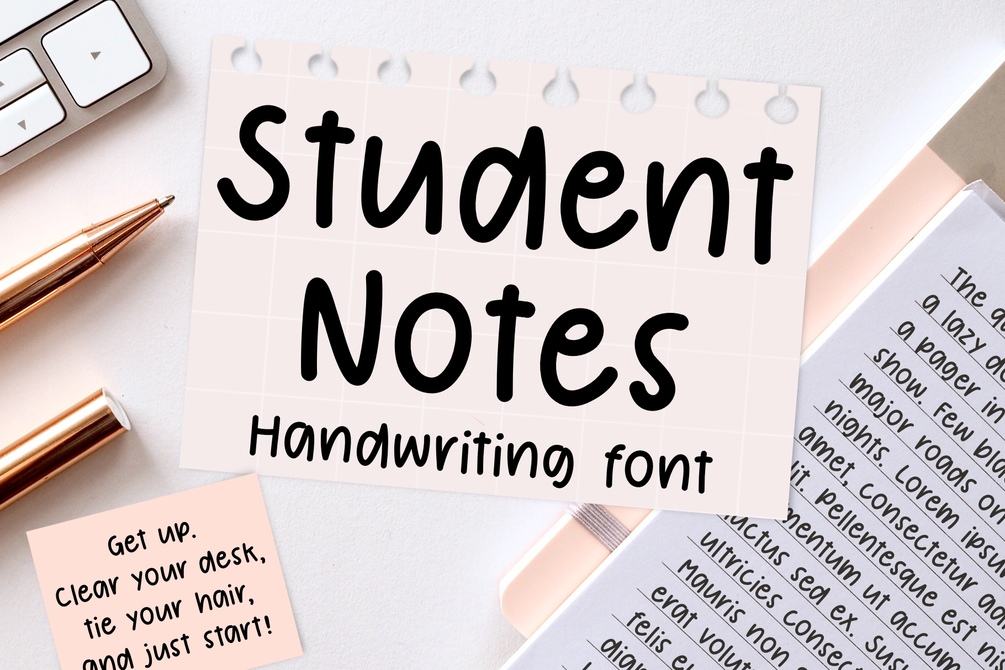 Student
Notes
Handwriting font
Get up.
Clear your desk,
tie your hair,
and just start!
The
a lazy
a pager in
show. Few
major roads on
nights. Lorem ipsum
amet, consectetur
Pellentesque est
mentum ut
ultricies
sed ex.
Mauris non
erat
felis